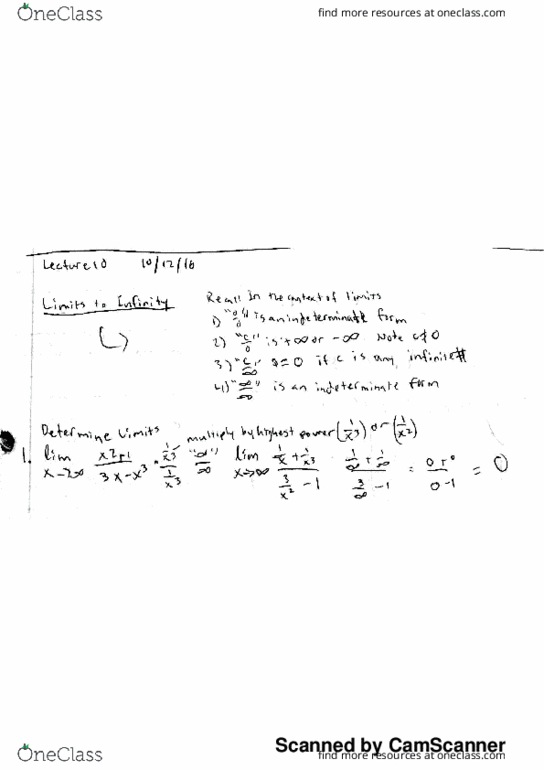 OneClass
find more resources at oneclass.com
Lecture 10 10/12/16
Limits to Infinity
Recall In the context of limits
1) "0/0" is an indeterminate form
2) "c/0" is +∞ or -∞ Note c≠0
3) "c/∞" = 0 if c is any infinite #
4) "∞/∞" is an indeterminate form
Determine Limits multiply by highest power (1/x³) or (1/x²)
1. lim x→∞ x2+1 / 3x-x³ · 1/x³ / 1/x³ "∞/∞" lim x→∞ 1/x + 1/x³ / 3/x² - 1 1/∞ + 1/∞ / 3/∞ - 1 = 0+0 / 0-1 = 0
Scanned by CamScanner
OneClass
find more resources at oneclass.com